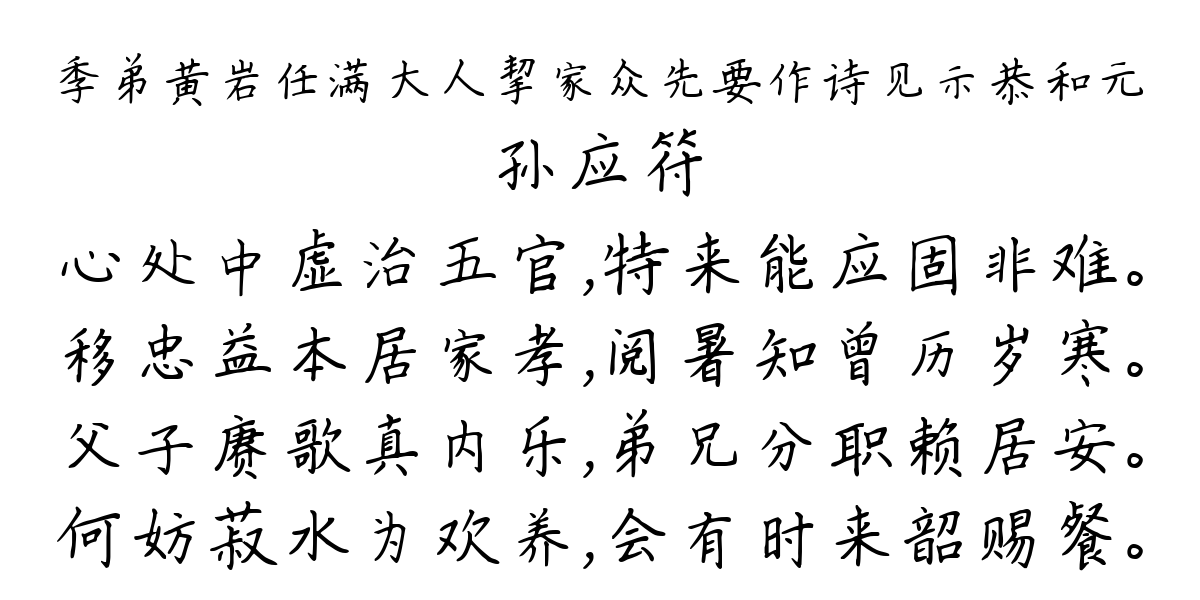 季弟黄岩任满大人挈家众先要作诗见示恭和元
孙应符
心处中虚治五官,特来能应固非难。
移忠益本居家孝,阅暑知曾历岁寒。
父子赓歌真内乐,弟兄分职赖居安。
何妨菽水为欢养,会有时来韶赐餐。